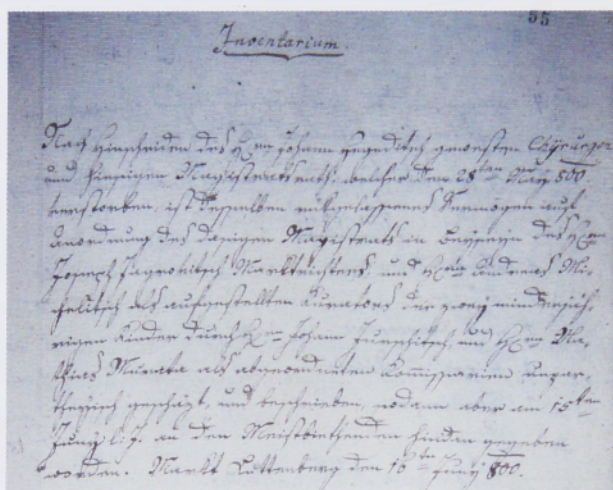 55
Inventarium.
Nach Hinscheiden des H:rn Johann gewesten Chyrurgen
und hiesigen Magistratsrath, welcher den 28ten May 800
verstorben, ist desselben rükgelassenes Vermögen auf
Anordnung des dasigen Magistrats in Beyseyn des H:rn
Joseph Marktrichters, und H:rn Andreas Mi-
chelitsch als aufgestellten Kurators der zwey minderjäh-
rigen Kinder durch H:rn Johann Junschitsch, und H:rn Ma-
thias Murata als abgeordneten Kommissarien unpar-
theyisch geschäzt, und beschrieben, sodann aber am 15ten
Juny l: J: an den Meistbiethenden hindan gegeben
worden. Markt Luttenberg den 16ten Juny 800.